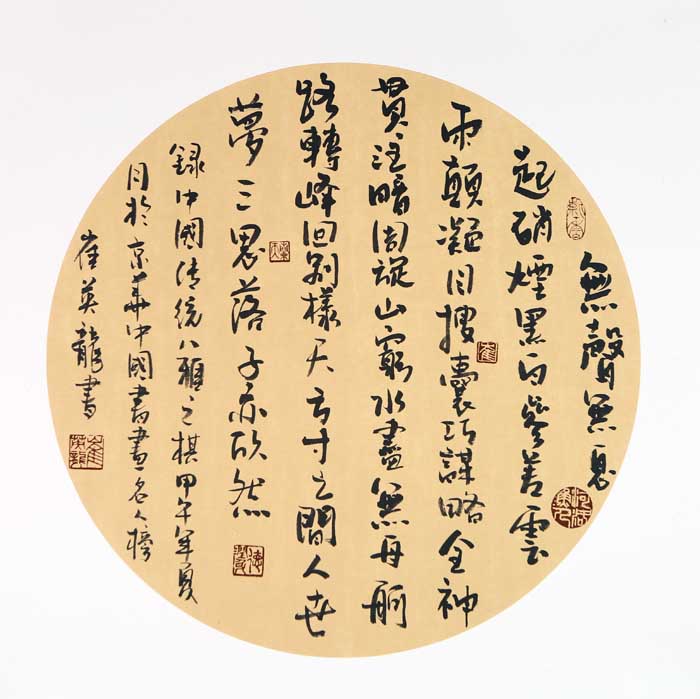 無聲無息
起硝煙黑白參差雲
雨顛凝目搜囊巧謀略全神
貫注暗周旋山窮水盡無舟舸
路轉峰回別樣天方寸之間人世
夢三思落子亦欣然
錄中國傳統八雅之棋甲午年夏
月於京華中國書畫名人榜
崔英龍書